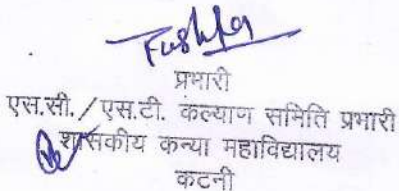 प्रभारी
एस.सी./एस.टी. कल्याण समिति प्रभारी
शासकीय कन्या महाविद्यालय
कटनी